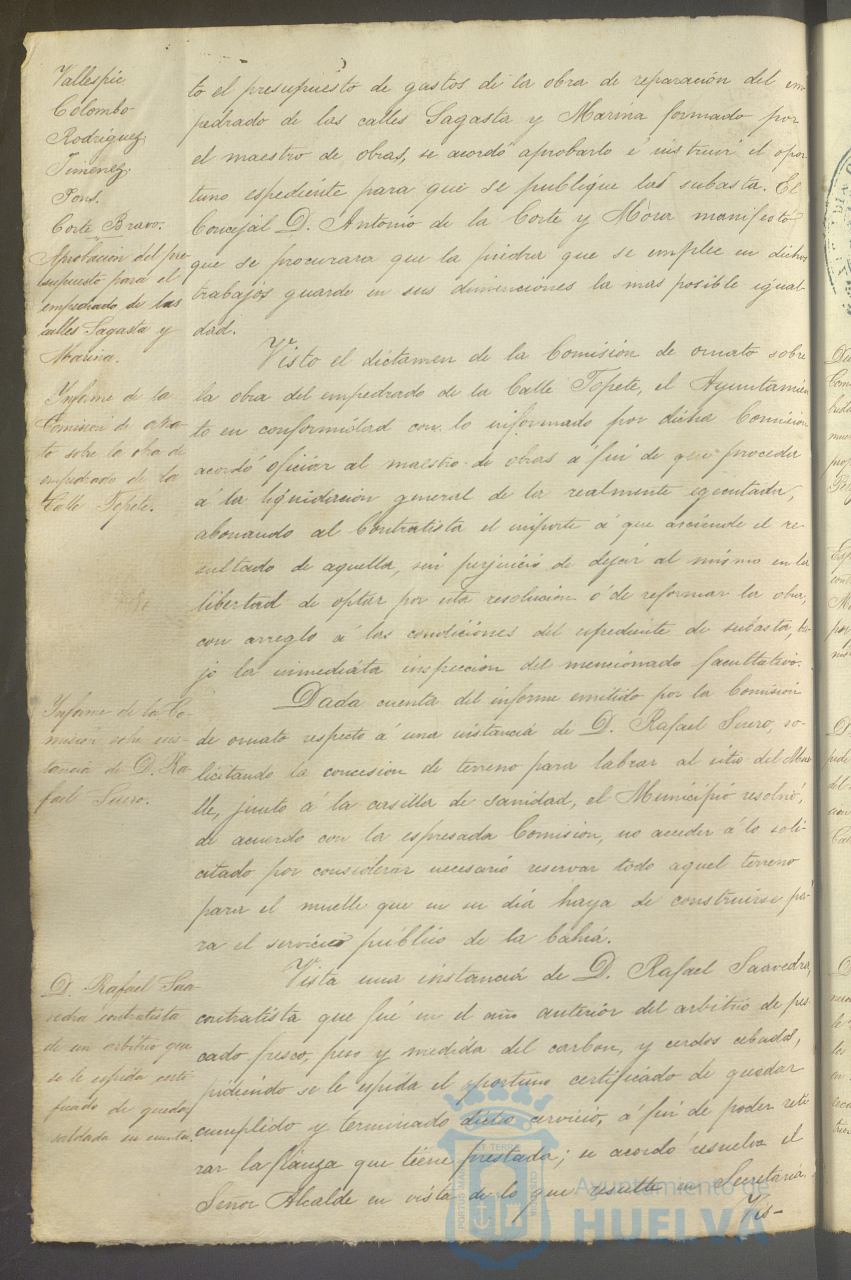 Vallespic
Colombo
Rodriguez.
Jimenez.
Pons.
Corte Bravo.
Aprobacion del pre
supuesto para el
empedrado de las
calles Sagasta y
Marina.
Informe de la
Comision de orna-
to sobre la obra de
empedrado de la
Calle Topete.
Informe de la Co-
mision sobre ins-
tancia de D. Ra-
fael Suero.
D. Rafael Saa-
vedra contratista
de un arbitrio que
se le espida certi-
ficado de quedar
saldada su cuenta.
to el presupuesto de gastos de la obra de reparación del em
pedrado de las calles Sagasta y Marina formado por
el maestro de obras, se acordó aprobarlo é instruir el opor
tuno espediente para que se publique la subasta. El
Concejal D. Antonio de la Corte y Mora manifestó
que se procurara que la piedra que se emplee en dichos
trabajos guarde en sus dimenciones la mas posible igual-
dad.
Visto el dictamen de la Comisión de ornato sobre
la obra del empedrado de la Calle Topete, el Ayuntamien
to en conformidad con lo informado por dicha Comision
acordó oficiar al maestro de obras á fin de que proceda
á la liquidacion general de la realmente egecutada,
abonando al Contratista el importe á que asciende el re-
sultado de aquella, sin perjuicio de dejar al mismo en la
libertad de optar por esta resolucion ó de reformar la obra,
con arreglo á las condiciones del espediente de subasta, ba-
jo la inmediata inspeccion del mencionado facultativo.
Dada cuenta del informe emitido por la Comisión
de ornato respecto á una instancia de D. Rafael Suero, so-
licitando la concesion de terreno para labrar al sitio del Mue
lle, junto á la casilla de sanidad, el Municipio resolvió,
de acuerdo con la espresada Comision, no acceder á lo soli-
citado por considerar necesario reservar todo aquel terreno
para el muelle que en su dia haya de construirse pa-
ra el servicio público de la bahia.
Vista una instancia de D. Rafael Saavedra,
contratista que fué en el año anterior del arbitrio de pes
cado fresco, peso y medida del carbon, y cerdos cebados,
pidiendo se le espida el oportuno certificado de quedar
cumplido y terminado dicho servicio, á fin de poder reti
rar la fianza que tiene prestada; se acordó resuelva el
Señor Alcalde en vista de lo que resulte en Secretaria.
Vis-
Ayuntamiento de
HUELVA